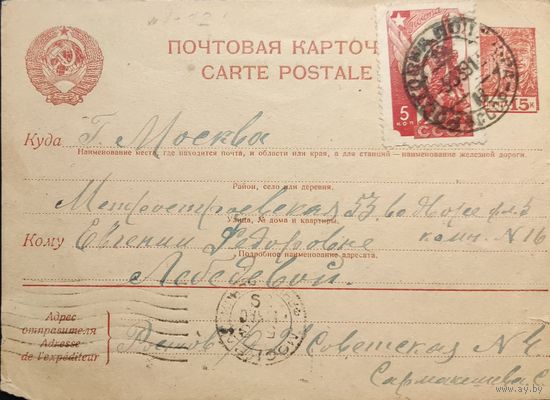 ПОЧТОВАЯ КАРТОЧ
CARTE POSTALE
5
КОП
СССР
15К
Куда Г. Москва
Наименование места, где находится почта, и области или края, а для станций — наименование железной дороги.
Район, село или деревня.
Метростроевская 53 во дворе фл. 3
Улица, № дома и квартиры.
Кому Евгении Федоровне комн. № 16
Подробное наименование адресата.
Лебедевой.
Адрес
отправителя
Adresse
de l'expéditeur
Ростов Советская № 4
www.ay.by